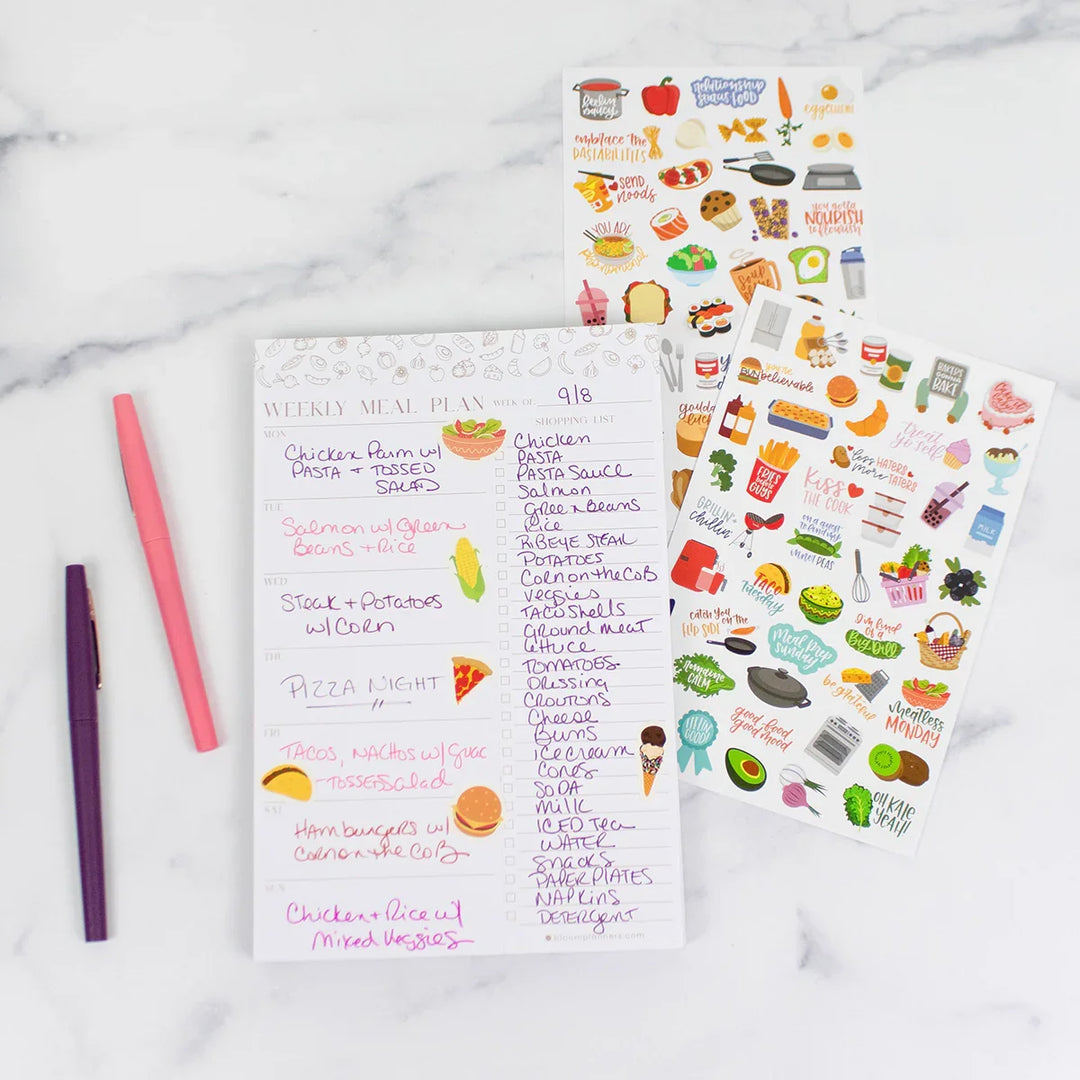 WEEKLY MEAL PLAN WEEK OF: 9/8
MON
Chicken Parm w/
PASTA + TOSSED
SALAD
TUE
Salmon w/ Green
Beans + Rice
WED
Steak + Potatoes
w/ CORN
THU
PIZZA NIGHT
FRI
TACOS, NACHOS w/ Guac
+ TOSSED Salad
SAT
HAmburgers w/
Corn on the CoB
SUN
Chicken + Rice w/
Mixed Veggies
SHOPPING LIST
Chicken
PASTA
PASTA SAUCE
Salmon
Green Beans
Rice
RIBEYE STEAK
POTATOES
Corn on the CoB
Veggies
TACO SHELLS
GROUND MEAT
Lettuce
TOMATOES
Dressing
CROUTONS
Cheese
Buns
Ice cream
Cones
SODA
Milk
ICED Tea
WATER
Snacks
PAPER PLATES
NAPKINS
DETERGENT
bloomplanners.com
feelin
saucy
relationship
status: FOOD
eggcellent
embrace the
PASTABILITIES
SEND
noods
you gotta
NOURISH
to flourish
YOU ARE
pho-nomenal
SOUP
you're
BUNbelievable
BAKERS
GONNA
BAKE
treat
yo self
less HATERS
more TATERS
FRIES
before
GUYS
KISS
THE COOK
GRILLIN'+
chillin'
on a quest
to find my
inner PEAS
MILK
TACO
TUESDAY
CATCH YOU ON the
FLIP SIDE
Meal Prep
SUNDAY
I'm kind
of a
BIG DILL
Romaine
CALM
be grateful
MEATLESS
MONDAY
good food
good mood
OH KALE
YEAH!